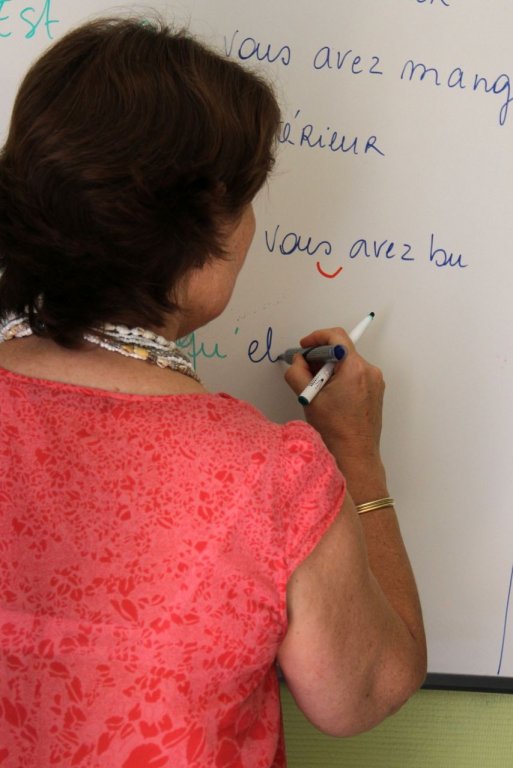 Est
vous avez mang
érieur
vous avez bu
qu'el